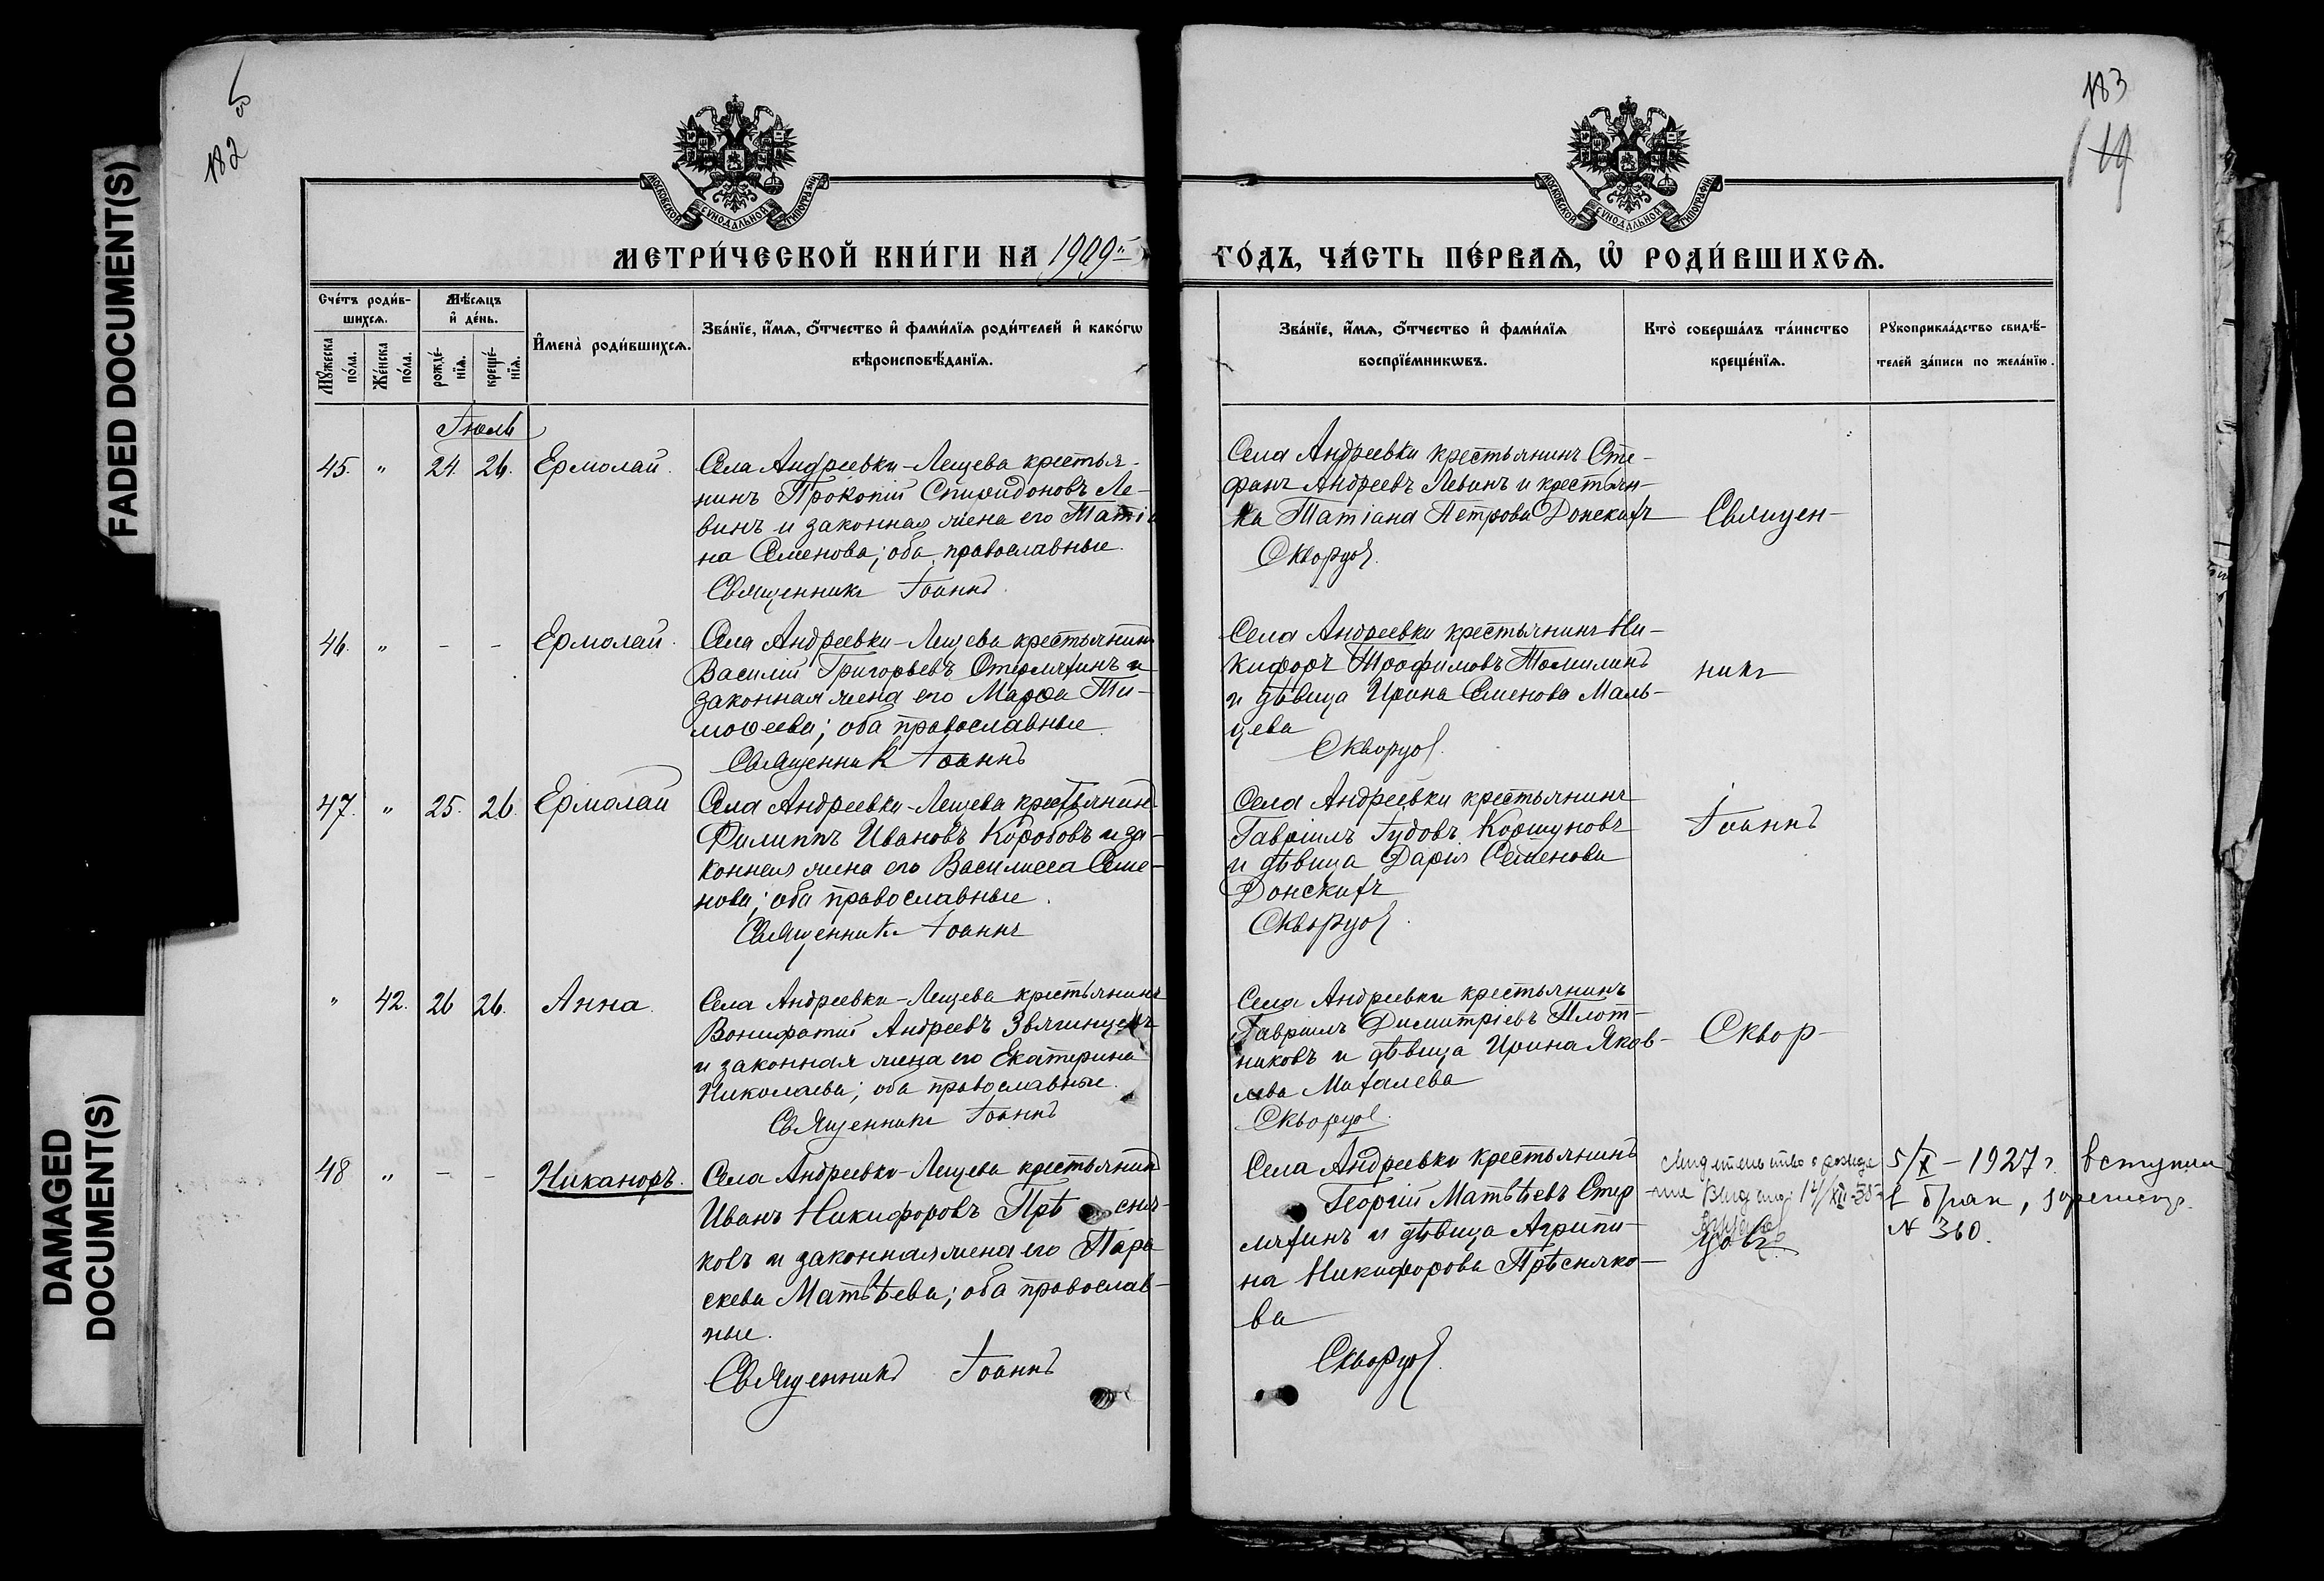 FADED DOCUMENT(S)
DAMAGED
DOCUMENT(S)
182
183
19
МОСКОВСКОЙ СѴНОДАЛЬНОЙ ТИПОГРАФІИ
МОСКОВСКОЙ СѴНОДАЛЬНОЙ ТИПОГРАФІИ
МЕТРИ́ЧЕСКОЙ КНИ́ГИ НА 1909й
ГО́ДЪ, ЧА́СТЬ ПЕ́РВАѦ, Ѡ҆ РОДИ́ВШИХСѦ.
Сче́тъ роди́в-
шихсѧ.
Мꙋ́жеска
по́ла.
Же́нска
по́ла.
Мѣ́сѧцъ
и҆ де́нь.
рожде́-
нїѧ.
креще́-
нїѧ.
И҆мена̀ роди́вшихсѧ.
Зва́нїе, и҆́мѧ, ѻ҆́тчество и҆ фами́лїѧ роди́телей и҆ како́гѡ
вѣроисповѣ́данїѧ.
Зва́нїе, и҆́мѧ, ѻ҆́тчество и҆ фами́лїѧ
воспрїе́мникѡвъ.
Кто̀ соверша́лъ та́инство
креще́нїѧ.
Рꙋкоприкла́дство свидѣ́-
телей за́писи по жела́нїю.
Іюль
45. " 24. 26. Ермолай.
Села Андреевки-Лещева крестья-
нинъ Прокопій Спиридоновъ Ле-
винъ и законная жена его Татiа
на Семенова; оба православные.
Священникъ Іоаннъ
Села Андреевки крестьянинъ Сте-
фанъ Андреевъ Левинъ и крестьян-
ка Татіана Петрова Донскихъ
Скворцов.
Священ-
46. " - - Ермолай.
Села Андреевки-Лещева крестьянинъ
Василій Григорьевъ Стерляхинъ и
законная жена его Марѳа Ти-
моѳеева; оба православные.
Священник Іоаннъ
Села Андреевки крестьянинъ Ни-
кифоръ Трофимовъ Томилинъ
и дѣвица Ирина Семенова Маль-
цева
Скворцов.
никъ
47. " 25. 26. Ермолай
Села Андреевки-Лещева крестьянинъ
Филиппъ Ивановъ Коробовъ и за-
конная жена его Василисса Семе-
нова; оба православные.
Священникъ Іоаннъ
Села Андреевки крестьянинъ
Гавріилъ Іудовъ Коршуновъ
и дѣвица Дарія Семенова
Донскихъ
Скворцов.
Іоаннъ
" 42. 26 26. Анна.
Села Андреевки-Лещева крестьянинъ
Вонифатій Андреевъ Звягинцевъ
и законная жена его Екатерина
Николаева; оба православные.
Священникъ Іоаннъ
Села Андреевки крестьянинъ
Гавріилъ Димитріевъ Плот-
никовъ и дѣвица Ирина Яков-
лева Михалева
Скворцов.
Сквор-
48 " - - Никаноръ.
Села Андреевки-Лещева крестьянинъ
Иванъ Никифоровъ Прѣсня-
ковъ и законная жена его Пара
скева Матвѣева; оба православ-
ные.
Священникъ Іоаннъ
Села Андреевки крестьянинъ
Георгій Матвѣевъ Стер-
ляхинъ и дѣвица Агрипи-
на Никифорова Прѣсняко-
ва
Скворцов.
Свидетельство о рожде
ние выдано
цовъ
5/X - 1927 г. вступил
в брак,
№ 360.